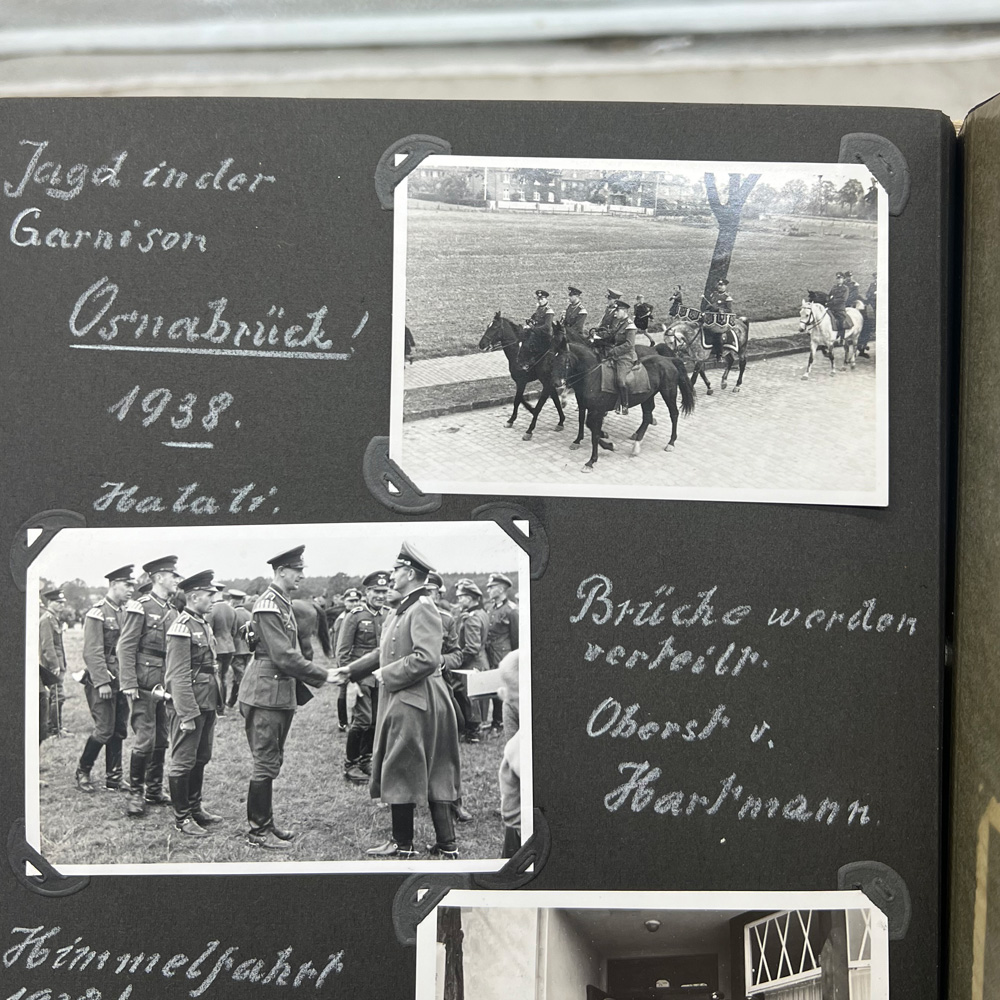 Jagd in der
Garnison
Osnabrück!
1938.
Halali.
Brüche werden
verteilt.
Oberst v.
Hartmann.
Himmelfahrt
1938!